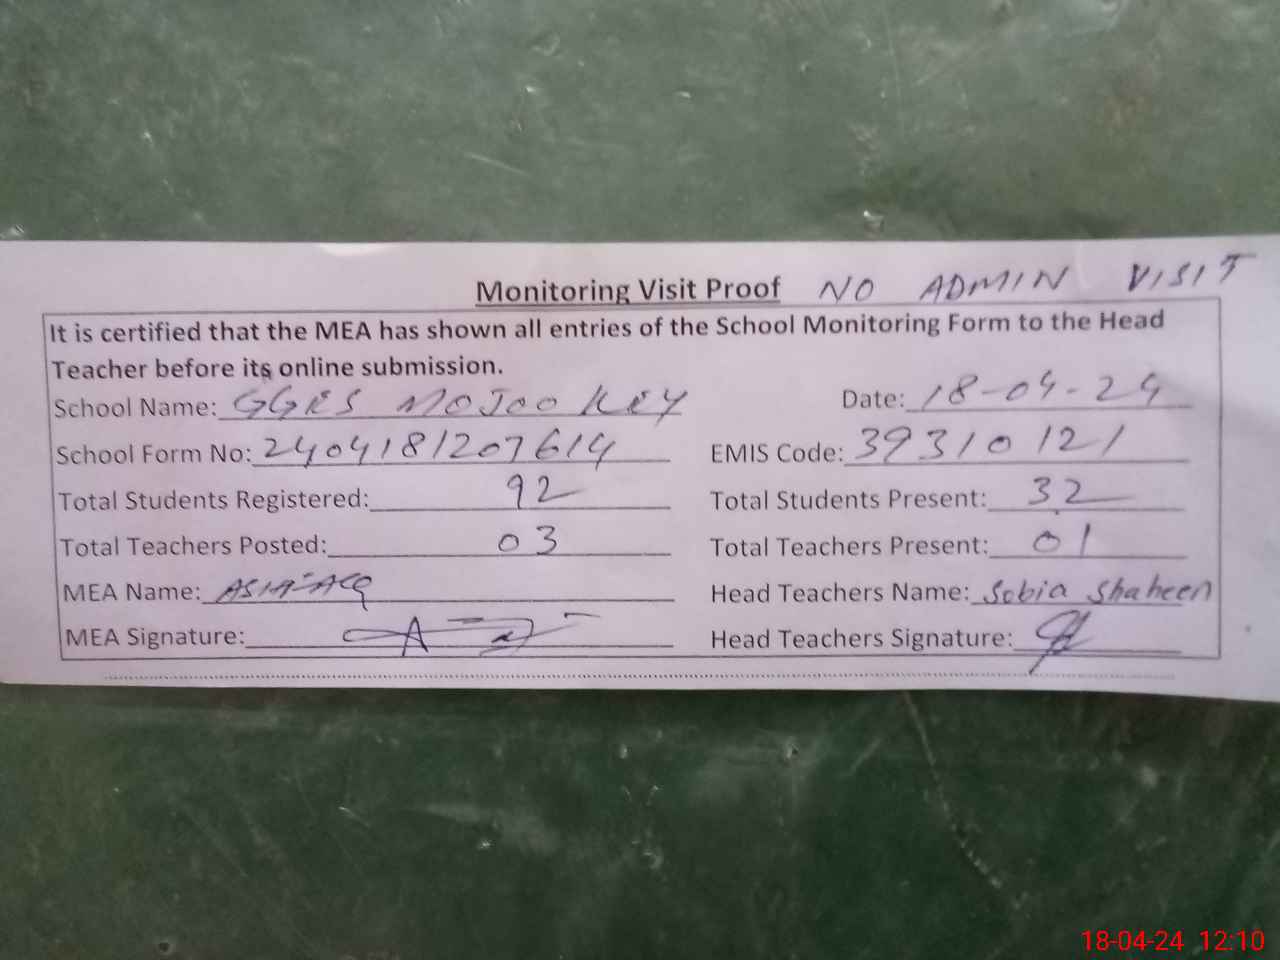 Monitoring Visit Proof NO ADMIN VISIT
It is certified that the MEA has shown all entries of the School Monitoring Form to the Head
Teacher before its online submission.
School Name: GGES MOJOO KEY Date: 18-04-24
School Form No: 2404181207614 EMIS Code: 39310121
Total Students Registered: 92 Total Students Present: 32
Total Teachers Posted: 03 Total Teachers Present: 01
MEA Name: ASIA Head Teachers Name: Sobia Shaheen
MEA Signature: Head Teachers Signature:
18-04-24 12:10